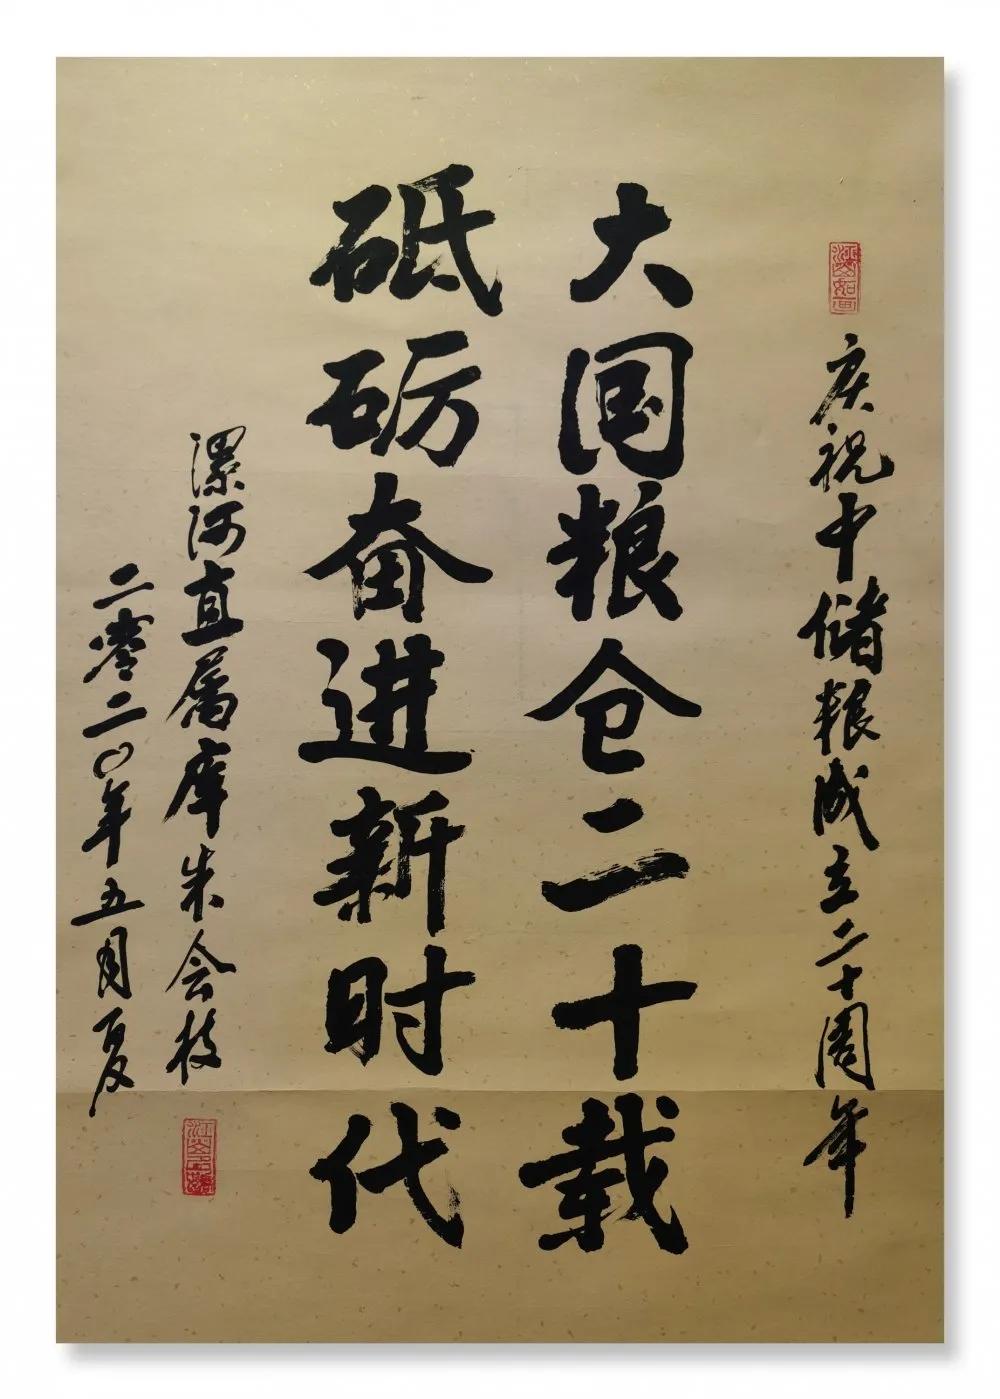 庆祝中储粮成立二十周年
大国粮仓二十载
砥砺奋进新时代
漯河直属库朱会枝
二零二〇年五月夏